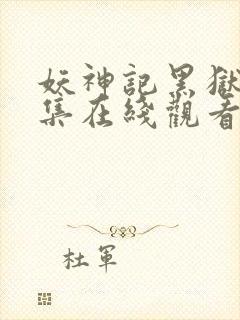 妖神記黑獄
集在綫觀看
杜軍